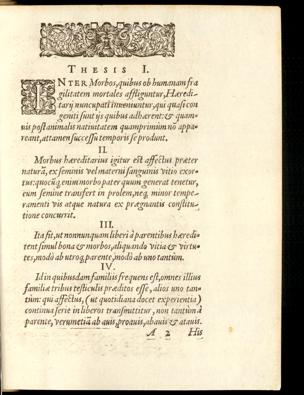 THESIS I.
INTER Morbos, quibus ob humanam fra
gilitatem mortales affliguntur, Hæredi-
tarij nuncupati inveniuntur, qui quasi con
geniti sunt ijs quibus adhærent: & quam-
vis post animalis nativitatem quamprimùm nō appa-
reant, attamen successu temporis se produnt.
II.
Morbus hæreditarius igitur est affectus præter
naturā, ex seminis vel materni sanguinis vitio exor-
tus: quocūq, enim morbo pater quum generat tenetur,
cum semine transfert in prolem, neq, minor tempe-
ramenti vis atque natura ex prægnantis constitu-
tione concurrit.
III.
Ita fit, ut nonnunquam liberi à parentibus hæredi-
tent simul bona & morbos, aliquando vitia & virtu-
tes, modò ab utroq, parente, modò ab uno tantùm.
IV.
Id in quibusdam familiis frequens est, omnes illius
familiæ tribus testiculis præditos esse, alios uno tan-
tùm: qui affectus, (ut quotidiana docet experientia)
continua serie in liberos transmittitur, non tantùm à
parente, verumetiā ab avis, proavis, abavis & atavis.
A 2 His